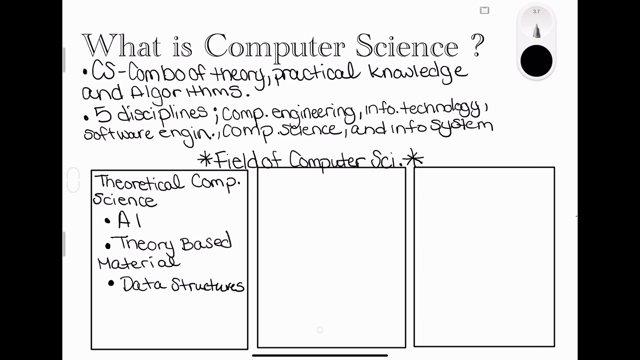 What is Computer Science ?
• CS-Combo of theory, practical knowledge
and Algorithms.
• 5 disciplines ; Comp. engineering, info. technology,
software engin., Comp science, and info system
*Field of Computer Sci.*
Theoretical Comp.
Science
• AI
• Theory Based
Material
• Data Structures